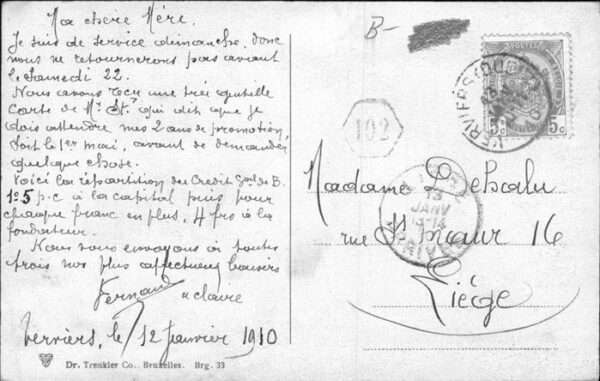 Ma chère Mère.
Je suis de service dimanche, donc
nous ne retournerons pas avant
le samedi 22.
Nous avons reçu une très gentille
carte de Mr St. qui dit que je
dois attendre mes 2 ans de promotion,
soit le 1er mai, avant de demander
quelque chose.
Voici la répartition du Crédit Gal de B.
1º 5 p.c à la capital puis pour
chaque franc en plus, 4 frs à la
fondateur.
Nous vous envoyons à toutes
trois nos plus affectueux baisers
Fernand & Claire
Verviers, le 12 janvier 1910
Dr. Trenkler Co., Bruxelles. Brg. 33
B-
102
5c 5c
VERVIERS
LIÉGE
13
JANV
Madame Dehalu
rue St Maur 16
Liége